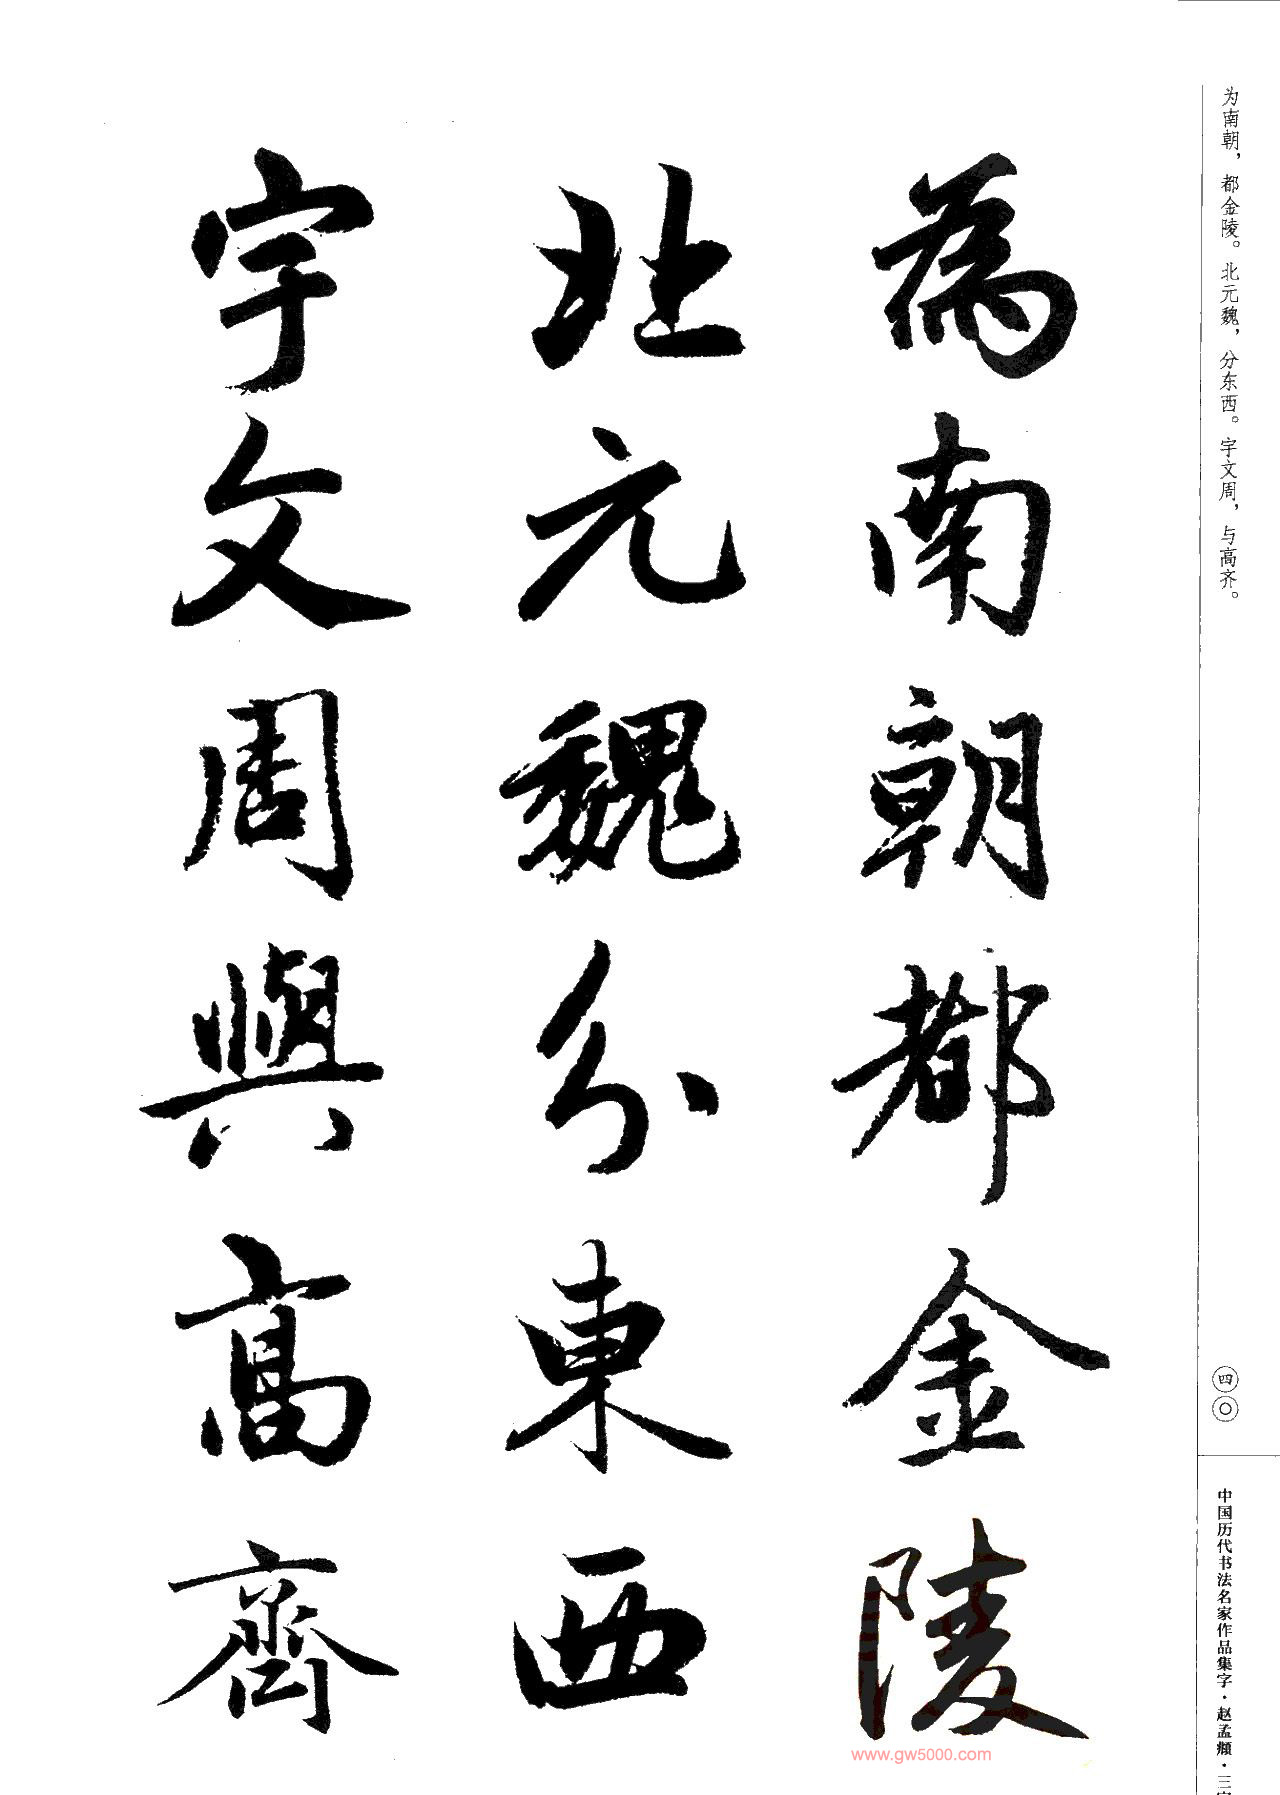 为南朝，都金陵。北元魏，分东西。宇文周，与高齐。
為南朝都金陵
北元魏分東西
宇文周與高齊
四〇
中国历代书法名家作品集字·赵孟頫·三字
www.gw5000.com